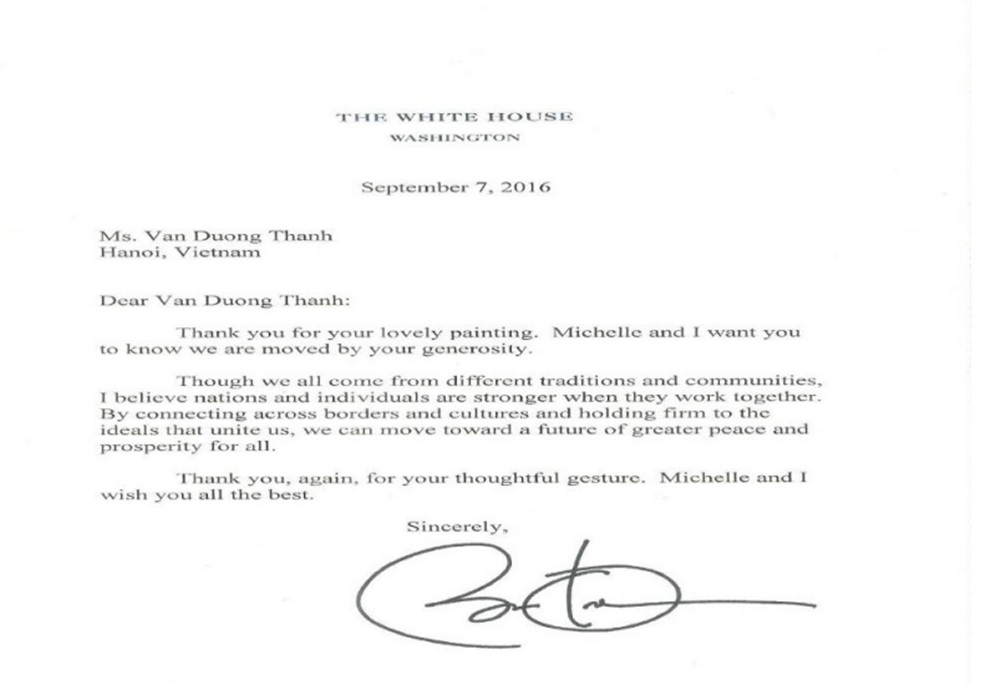 THE WHITE HOUSE
WASHINGTON
September 7, 2016
Ms. Van Duong Thanh
Hanoi, Vietnam
Dear Van Duong Thanh:
Thank you for your lovely painting. Michelle and I want you
to know we are moved by your generosity.
Though we all come from different traditions and communities,
I believe nations and individuals are stronger when they work together.
By connecting across borders and cultures and holding firm to the
ideals that unite us, we can move toward a future of greater peace and
prosperity for all.
Thank you, again, for your thoughtful gesture. Michelle and I
wish you all the best.
Sincerely,